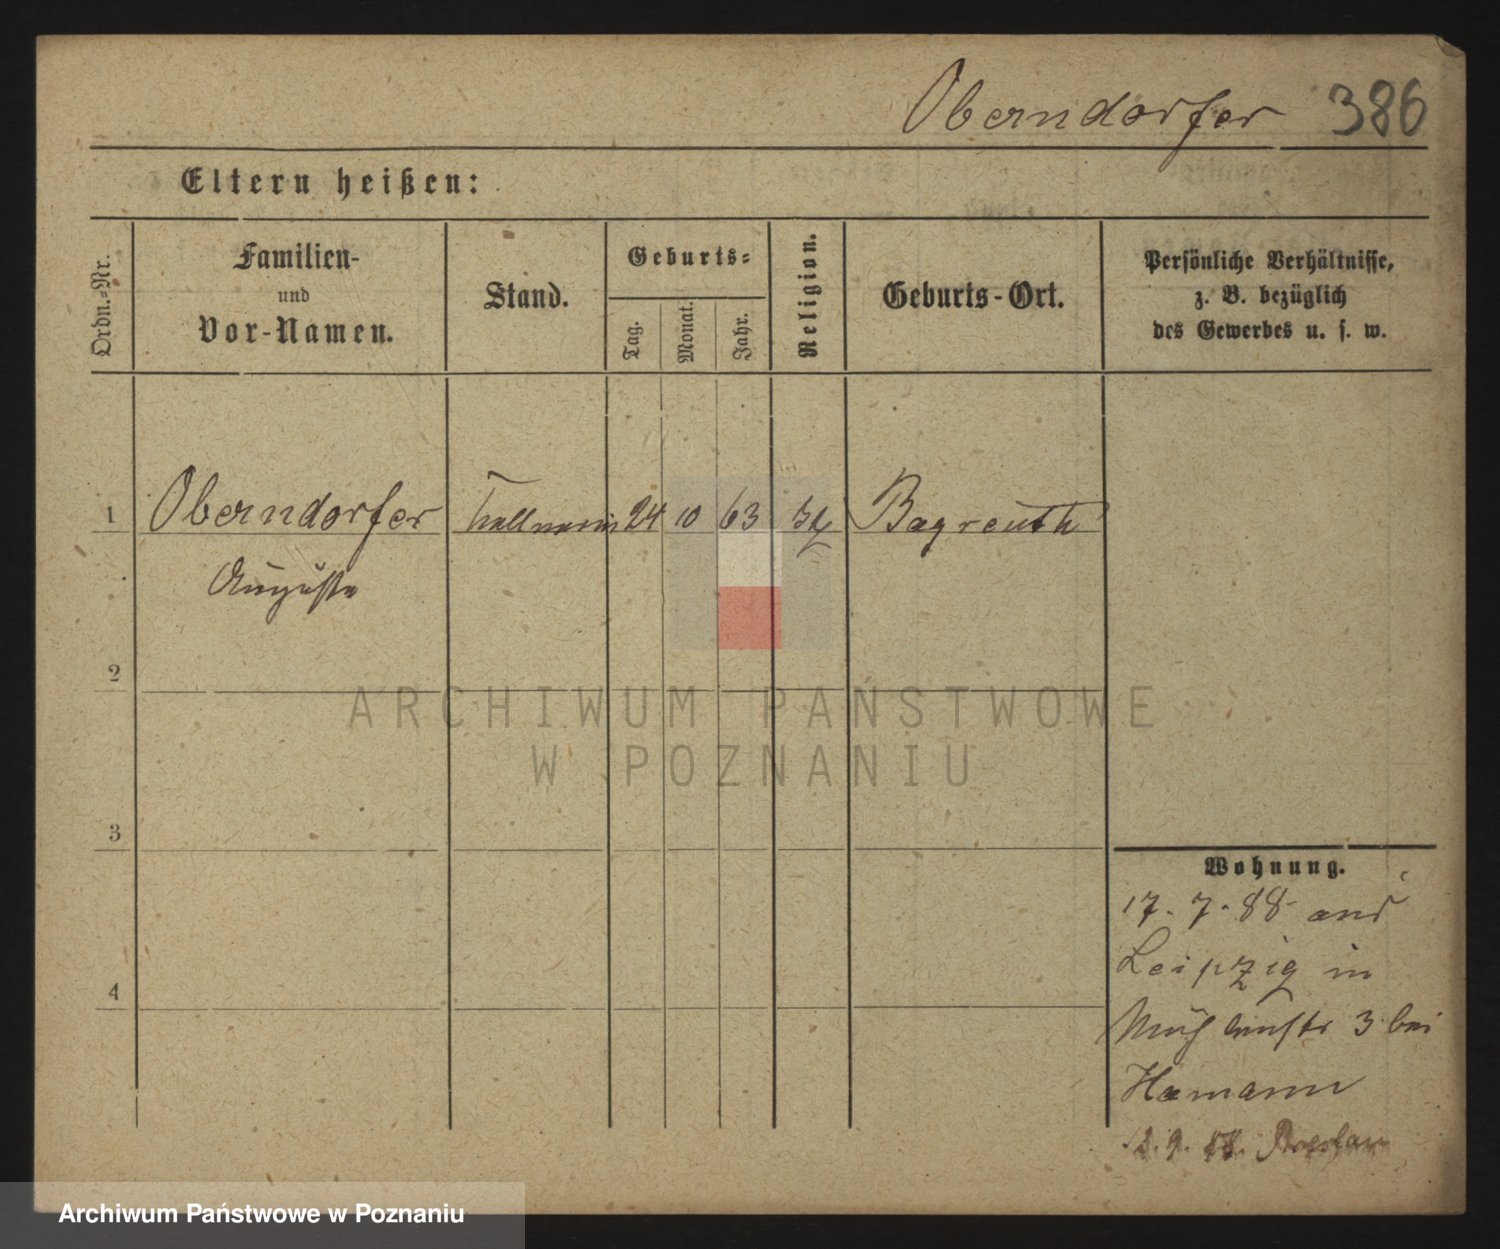 Oberndorfer 386
Eltern heißen:
Ordn.-Nr.
Familien-
und
Vor-Namen.
Stand.
Geburts-
Tag.
Monat.
Jahr.
Religion.
Geburts-Ort.
Persönliche Verhältnisse,
z. B. bezüglich
des Gewerbes u. s. w.
1 Oberndorfer Kellnerin 24 10 63 Bayreuth
Auguste
2
3
4
Wohnung.
17.7.88 aus
Leipzig in
Mühlenstr 3 bei
Hamann
2.9.88. Breslau
ARCHIWUM PAŃSTWOWE
W POZNANIU
Archiwum Państwowe w Poznaniu